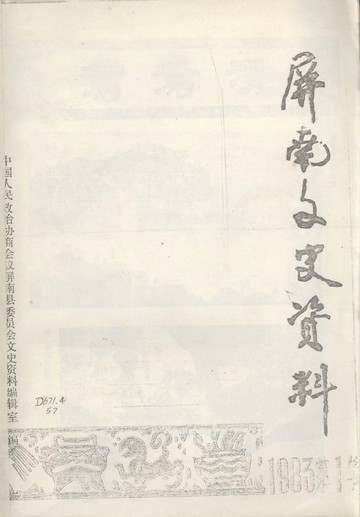 屏南文史资料
中国人民政治协商会议屏南县委员会文史资料编辑室
D671.4
57
1983